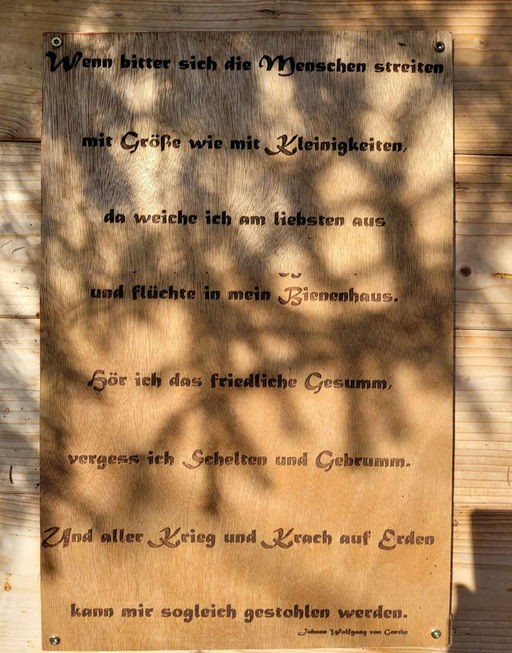 Wenn bitter sich die Menschen streiten
mit Größe wie mit Kleinigkeiten,
da weiche ich am liebsten aus
und flüchte in mein Bienenhaus.
Hör ich das friedliche Gesumm,
vergess ich Schelten und Gebrumm.
Und aller Krieg und Krach auf Erden
kann mir sogleich gestohlen werden.
Johann Wolfgang von Goethe